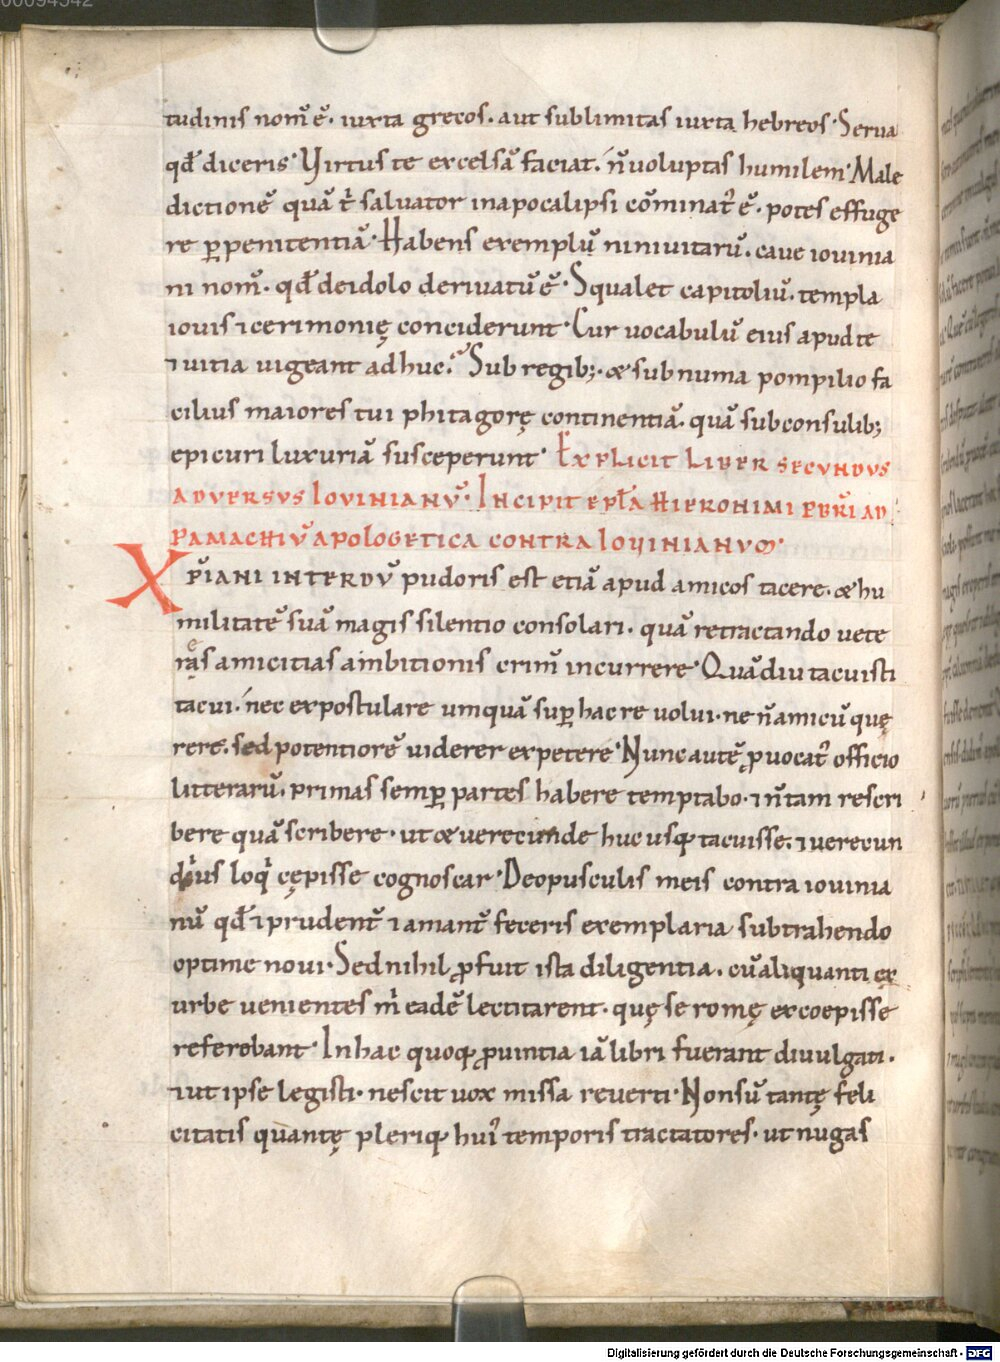 00094542
tudinis nom̄ ē. iuxta grecos. aut sublimitas iuxta hebreos. Serua
qđ diceris. Virtus te excelsā faciat. n̄ uoluptas humilem. Male
dictionē quā t' saluator inapocalipsi cōminat' ē. potes effuge
re p̱penitentiā. Habens exemplū niniuitarū. caue iouinia
ni nom̄. qđ deidolo deriuatū ē. Squalet capitoliū. templa
iouis ⁊cerimonię conciderunt. Cur uocabulū eius apud te
⁊uitia uigeant adhuc? Sub regib;. & sub numa pompilio fa
cilius maiores tui phitagorę continentiā. quā sub consulib;
epicuri luxuriā susceperunt. EXPLICIT LIBER SECUNDUS
ADUERSUS IOUINIANŪ. INCIPIT EPLA HIERONIMI PBRI AD
PAMACHIŪ APOLOGETICA CONTRA IOUINIANUM.
XPIANI INTERDŪ pudoris est etiā apud amicos tacere. & hu
militatē suā magis silentio consolari. quā retractando uete
ras amicitias ambitionis crim̄ incurrere. Quādiu tacuisti
tacui. nec expostulare umquā sup̱ hac re uolui. ne n̄ amicū quę
rere. sed potentiorē uiderer expetere. Nunc autē ꝓuocat' officio
litterarū. primas semp̱ partes habere temptabo. ⁊ n̄ tam rescri
bere quā scribere. ut & uerecunde huc usq; tacuisse. ⁊ uerecun
dius loq' cępisse cognoscar. De opusculis meis contra iouinia
nū qđ ⁊ prudent' ⁊ amant' feceris exemplaria subtrahendo
optime noui. Sed nihil ꝓfuit ista diligentia. cū aliquanti ex
urbe uenientes m' eadē lectitarent. quę se romę excoepisse
referebant. In hac quoq; ꝓuintia iā libri fuerant diuulgati.
⁊ ut ipse legisti. nescit uox missa reuerti. Non sū tantę feli
citatis quantę pleriq; hui' temporis tractatores. ut nugas
Digitalisierung gefördert durch die Deutsche Forschungsgemeinschaft - DFG